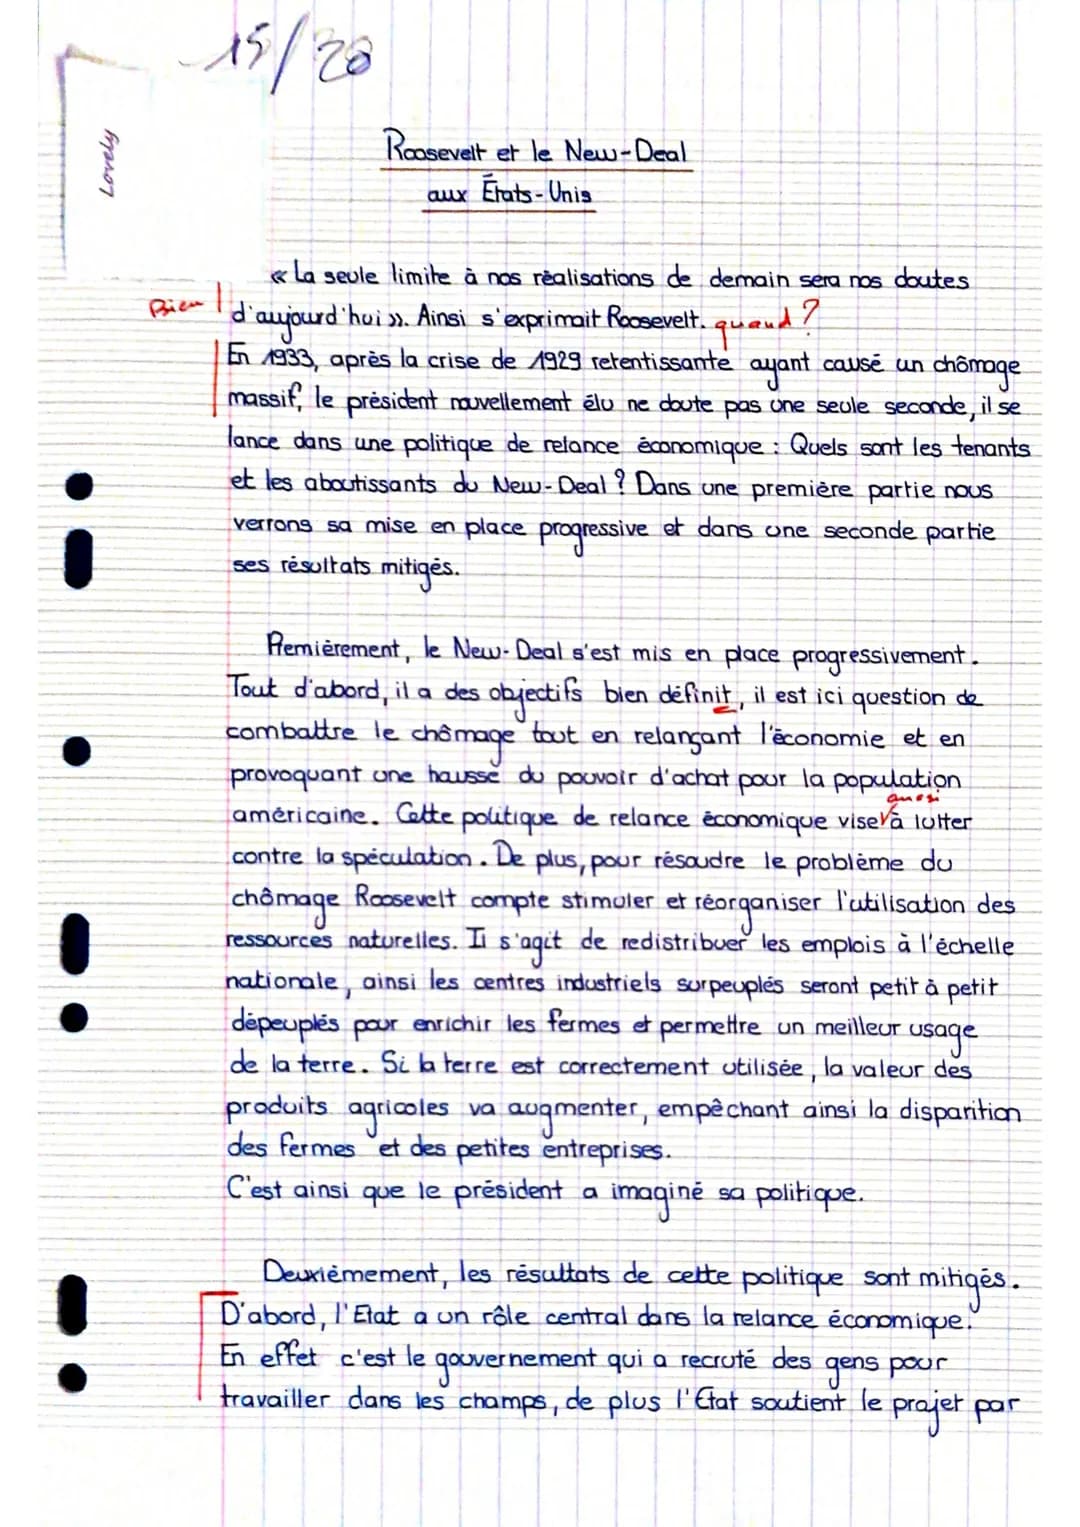 15/20
Lovely
Roosevelt et le New-Deal
aux États-Unis
« La seule limite à nos réalisations de demain sera nos doutes
Bien
d'aujourd'hui ». Ainsi s'exprimait Roosevelt. quand ?
En 1933, après la crise de 1929 retentissante ayant causé un chômage
massif, le président nouvellement élu ne doute pas une seule seconde, il se
lance dans une politique de relance économique : Quels sont les tenants
et les aboutissants du New-Deal ? Dans une première partie nous
verrons sa mise en place progressive et dans une seconde partie
ses résultats mitigés.
Premièrement, le New-Deal s'est mis en place progressivement.
Tout d'abord, il a des objectifs bien définit, il est ici question de
combattre le chômage tout en relançant l'économie et en
provoquant une hausse du pouvoir d'achat pour la population
aussi
américaine. Cette politique de relance économique vise à lutter
contre la spéculation. De plus, pour résoudre le problème du
chômage Roosevelt compte stimuler et réorganiser l'utilisation des
ressources naturelles. Il s'agit de redistribuer les emplois à l'échelle
nationale, ainsi les centres industriels surpeuplés seront petit à petit
dépeuplés pour enrichir les fermes et permettre un meilleur usage
de la terre. Si la terre est correctement utilisée, la valeur des
produits agricoles va augmenter, empêchant ainsi la disparition
des fermes et des petites entreprises.
C'est ainsi que le président a imaginé sa politique.
Deuxièmement, les résultats de cette politique sont mitigés.
D'abord, l'Etat a un rôle central dans la relance économique.
En effet c'est le gouvernement qui a recruté des gens pour
travailler dans les champs, de plus l'Etat soutient le projet par